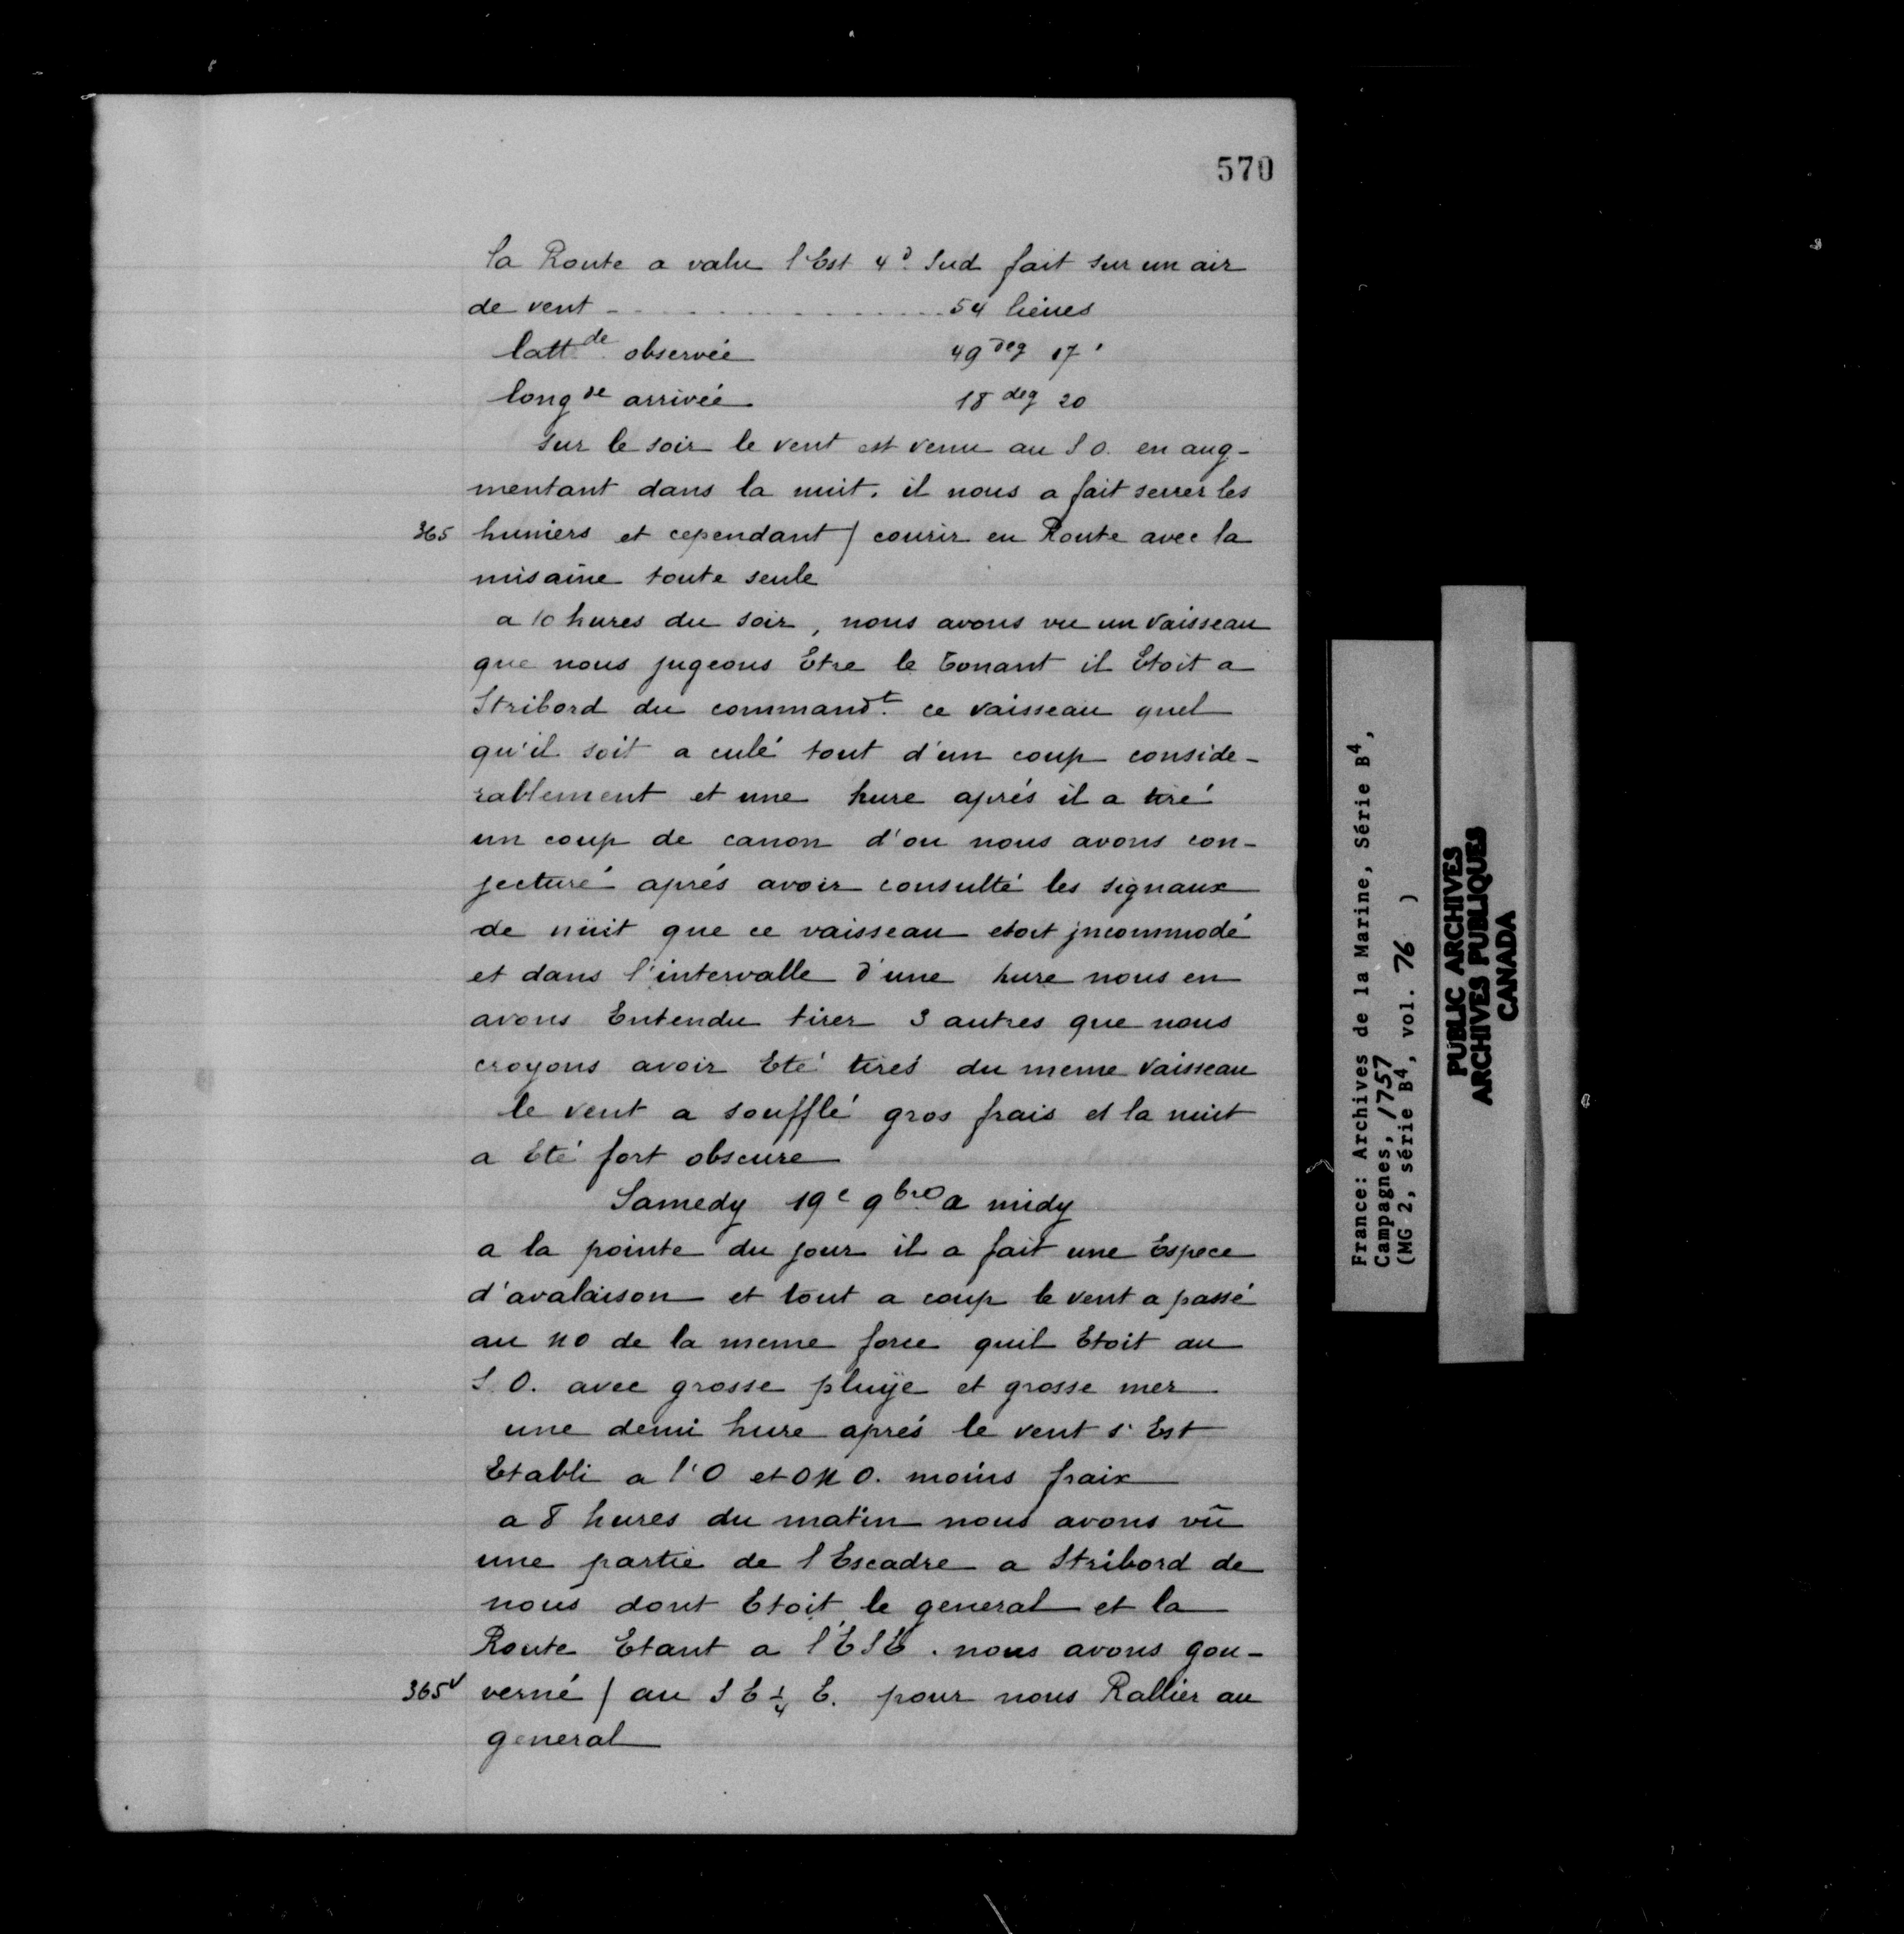 570
la Route a valu l'Est 4d. Sud fait sur un air
de vent - . . . . . . . . . . . . . . 54 liëues
lattde. observée 49 deg 17'
longde arrivée 18 deg 20
sur le soir le vent est venu au S O. en aug-
mentant dans la nuit. il nous a fait serrer les
365 huniers et cependant / courir en Route avec la
misaine toute seule
a 10 hures du soir, nous avons vu un vaisseau
que nous jugeons Etre le Tonant il Etoit a
Stribord du commandt. ce vaisseau quel
qu'il soit a culé tout d'un coup conside-
rablement et une hure aprés il a tiré
un coup de canon d'ou nous avons con-
jecturé aprés avoir consulté les signaux
de nüit que ce vaisseau etoit jncommodé
et dans l'intervalle d'une hure nous en
avons Entendu tirer 3 autres que nous
croyons avoir Eté tirés du meme vaisseau
le vent a soufflé gros frais et la nuit
a Eté fort obscure
Samedy 19e 9bre. a midy
a la pointe du jour il a fait une Espece
d'avalaison et tout a coup le vent a passé
au NO de la meme force quil Etoit au
S. O. avec grosse pluÿe et grosse mer
une demi hure aprés le vent s'Est
Etabli a l'O et ONO. moins fraix
a 8 hures du matin nous avons vũ
une partie de l'Escadre a Stribord de
nous dont Etoit le general et la
Route Etant a l'ESE. nous avons gou-
365v verné / au S E 1/4 E. pour nous Rallier au
general
France: Archives de la Marine, Série B4,
Campagnes, 1757
(MG 2, série B4, vol. 76 )
PUBLIC ARCHIVES
ARCHIVES PUBLIQUES
CANADA